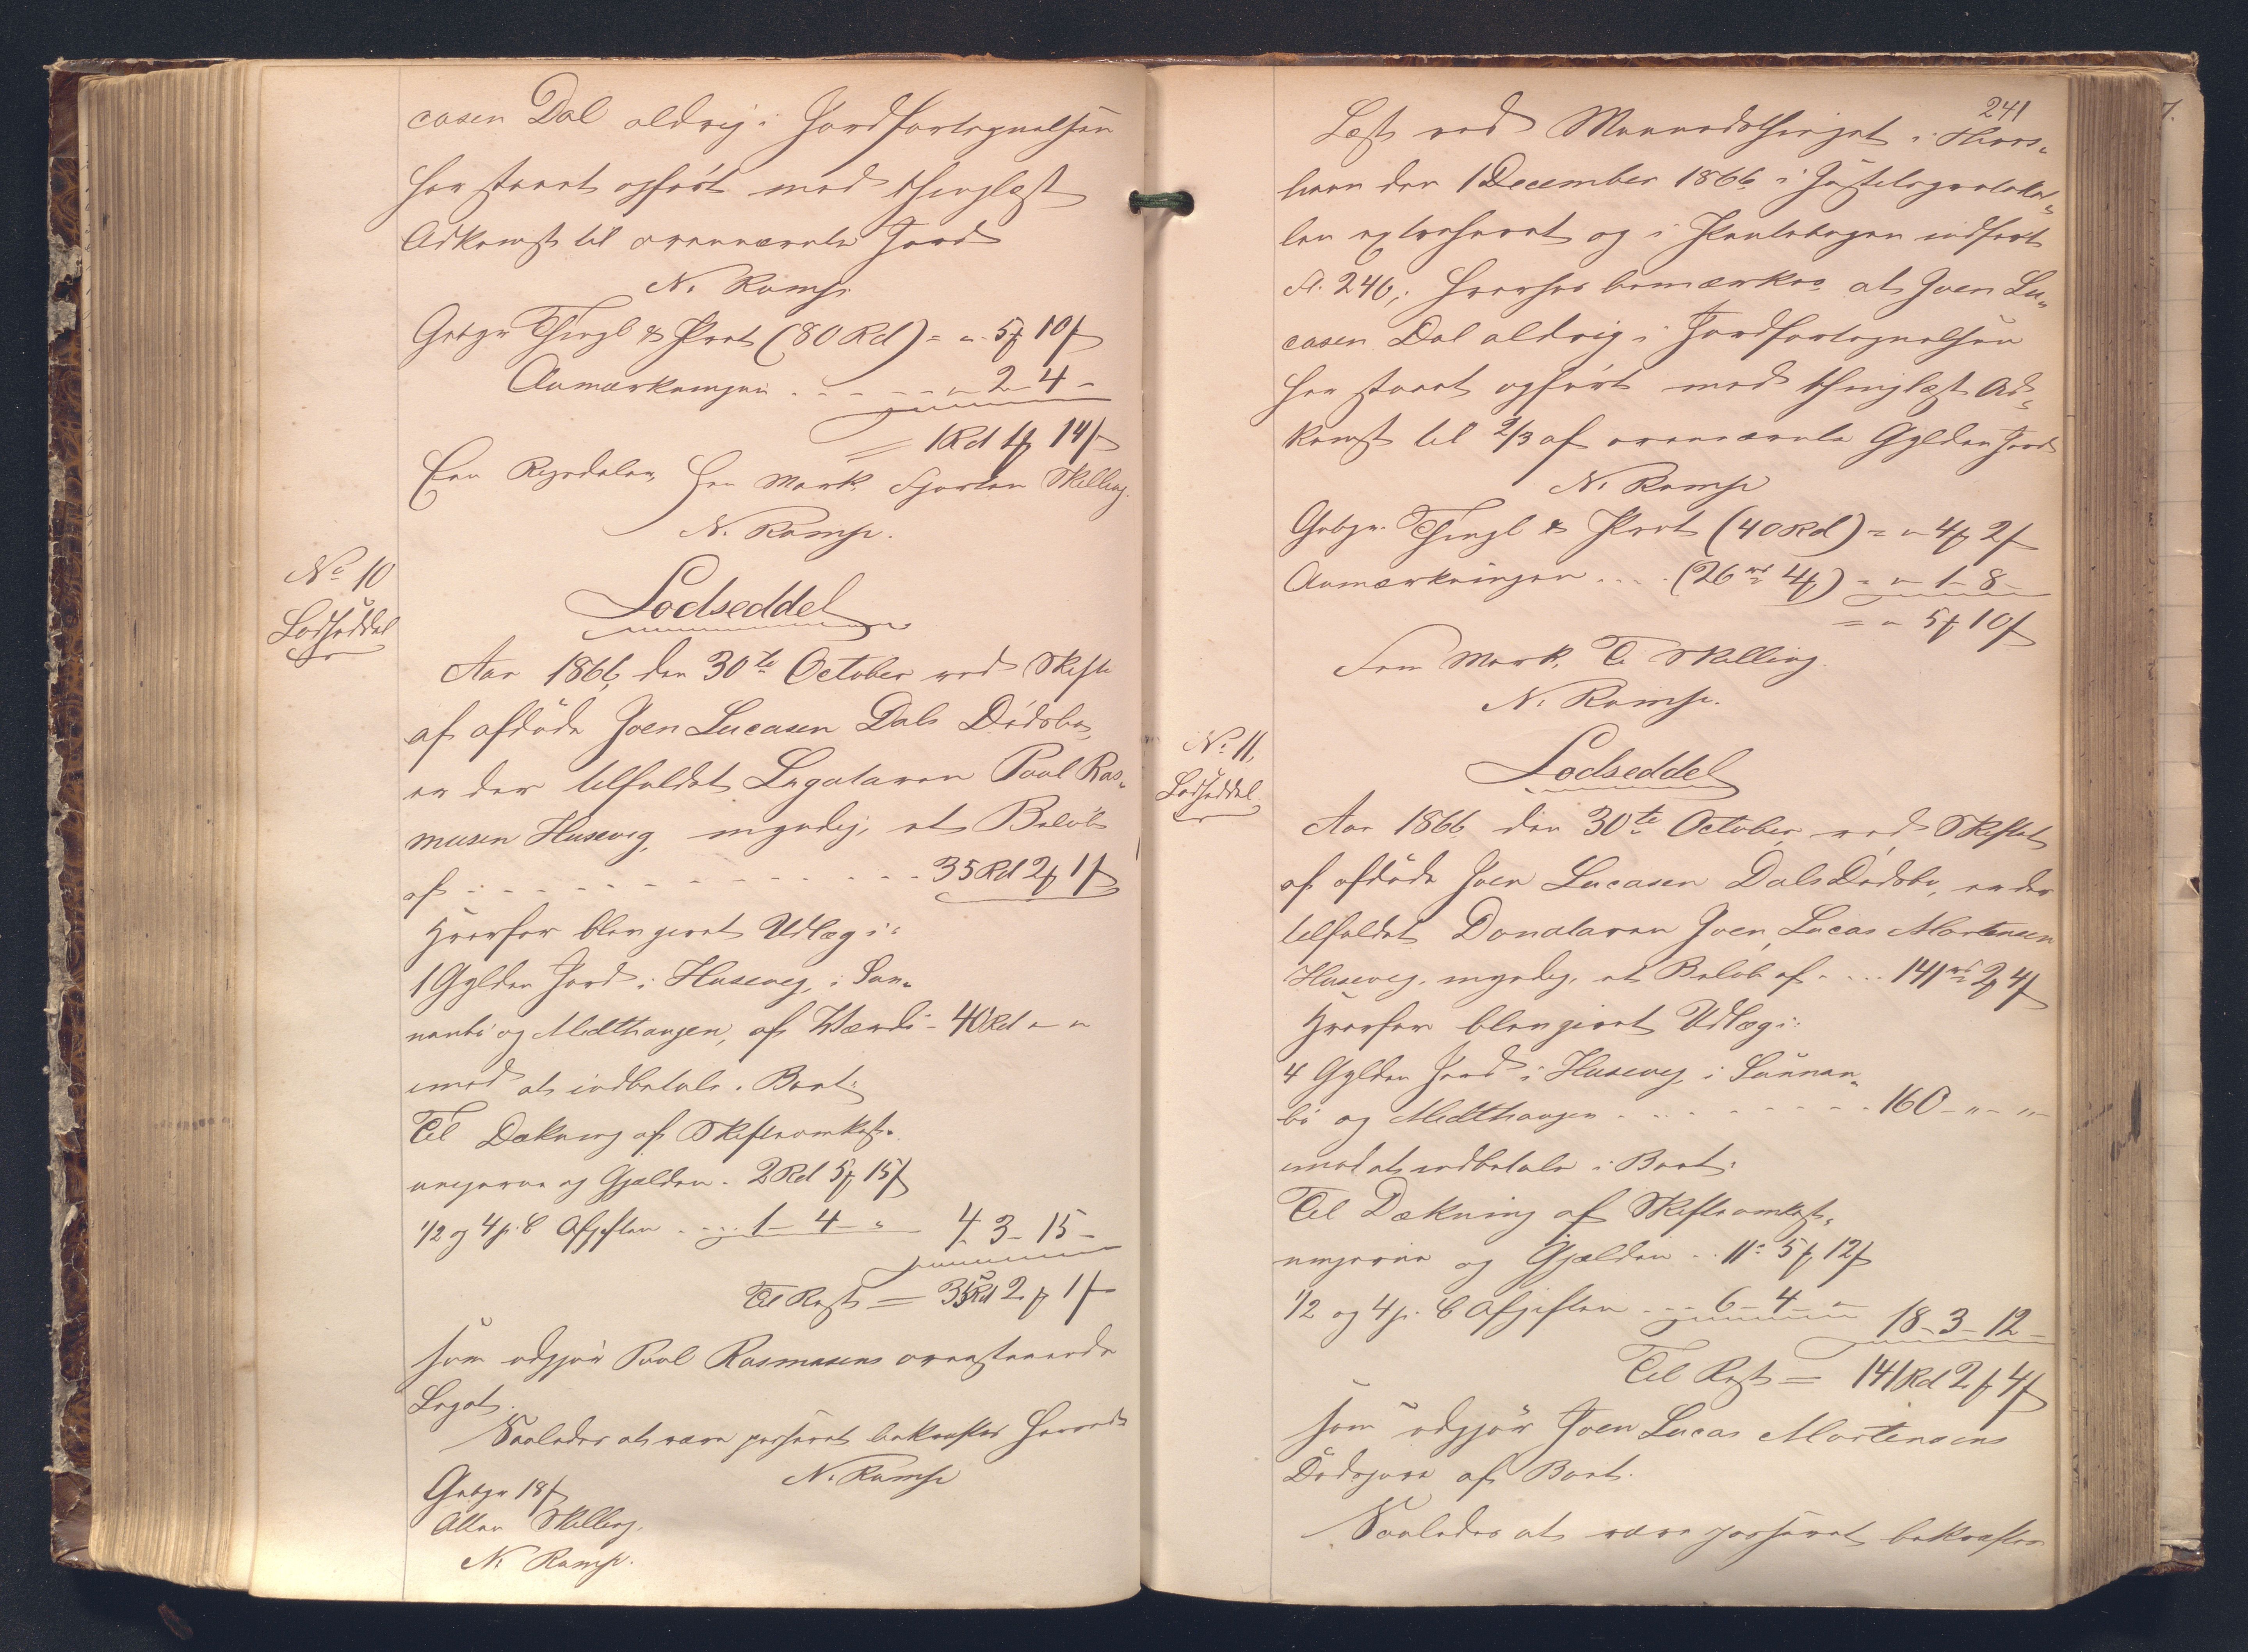 casen Dal aldrig i Jordfortegnelsen
har staaet opført med thinglæst
Adkomst til ovennævnte Jord
N. Rømsø
Gebyr Thingl & Prot (80 Rd) = " 5 10
Anmærkningen " 2 4 -
= 1 Rd 1 14
Een Rigsdaler, Een Mark, Fjorten Skilling.
N. Rømsø.
No 10
Lodseddel
Lodseddel
Aar 1866, den 30te October ved Skifte
af afdøde Joen Lucasen Dals Dødsbo,
er der tilfaldet Legataren Poul Ras-
musen Husevig, myndig, et Beløb
af 35 Rd 2 1
Hvorfor blev givet Udlæg i:
1 Gylden Jord i Husevig, i Sun-
nanbi og Midthaugen, af Værdi - 40 Rd " "
imod at indbetale i Boet:
Til Dækning af Skifteomkost-
ningerne og Gjælden - 2 Rd 5 15
1/2 og 4 p. C Afgiften 1 - 4 - " 4 - 3 - 15 -
Til Rest = 35 Rd 2 1
som udgjør Poul Rasmusens ovenstaaende
Legat.
Saaledes at være passeret bekræftes herved
N. Rømsø
Gebyr 18
Atten Skilling.
N. Rømsø.
241
Læst ved Maanedsthinget i Thors-
havn den 1 December 1866, i Justitsprotokol-
len extraheret og i Pantebogen indført
fl. 240; hvorhos bemærkes at Joen Lu-
casen Dal aldrig i Jordfortegnelsen
har staaet opført med thinglæst Ad-
komst til 2/3 af ovennævnte Gylden Jord
N. Rømsø
Gebyr Thingl & Prot (40 Rd) = " 4 2
Anmærkningen (26 4) = " 1 - 8 -
= " 5 10
Fem Mark, Ti Skilling.
N. Rømsø.
No 11,
Lodseddel
Lodseddel
Aar 1866 den 30te October, ved Skiftet
af afdøde Joen Lucasen Dals Dødsbo, er der
tilfaldet Donataren Joen Lucas Mortensen
Husevig, myndig, et Beløb af 141 2 4
Hvorfor blev givet Udlæg i:
4 Gylden Jord i Husevig i Sunnan-
bi og Midthaugen 160 - " - " -
imod at indbetale i Boet:
Til Dækning af Skifteomkost-
ningerne og Gjælden 11 5 12
1/2 og 4 p. C Afgiften 6 - 4 - " 18 - 3 - 12 -
Til Rest = 141 Rd 2 4
som udgjør Joen Lucas Mortensens
Dødsgave af Boet.
Saaledes at være passeret bekræftes